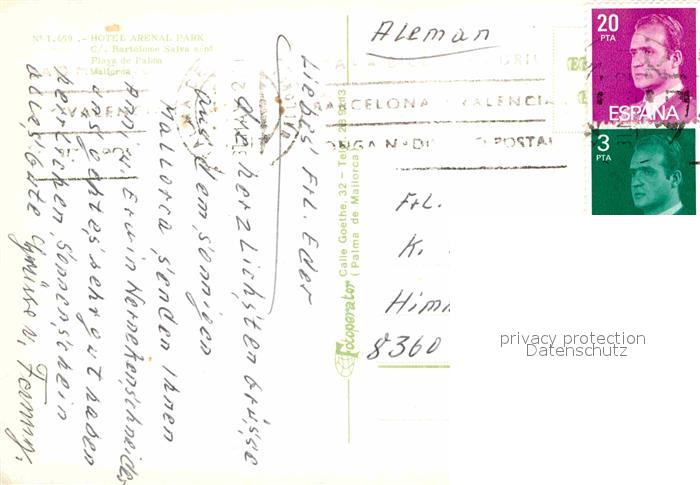 Nº 1.659 .- HOTEL ARENAL PARK
C/. Bartolome Salva s/nº
Playa de Palma
Mallorca
Aleman
20
PTA
ESPAÑA
3
PTA
BARCELONA VALENCIA
PONGA Nº DI POSTAL
Liebes' Frl. Eder
die herzlichsten Grüsse
aus dem sonnigen
Mallorca senden Ihnen
Anni u. Erwin
uns geht es sehr gut haben
herrlichen Sonnenschein
alles Gute Grüsse v. Fanny.
Fotoperator Calle Goethe, 32 - Tel.
(Palma de Mallorca)
Frl.
K.
Him
8360
privacy protection
Datenschutz